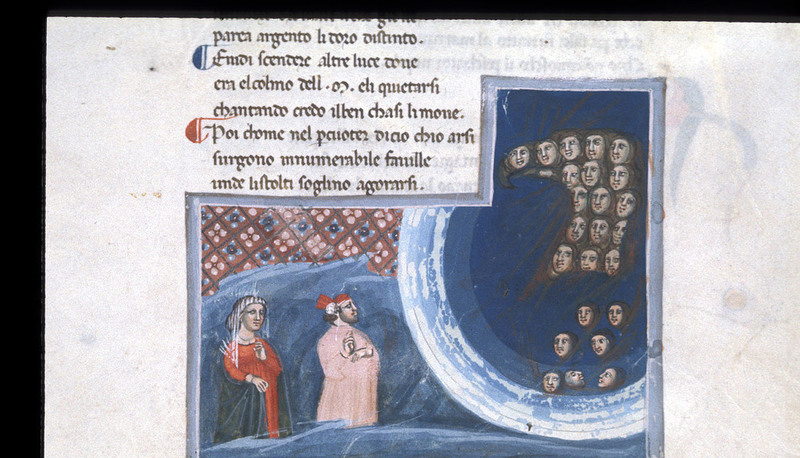 parea argento li doro distinto.
Euidi scendere altre luce doue
era el colmo dell .m. eli quietarsi
chantando credo il ben cha si li moue.
Poi chome nel pcuoter dicio chi o arsi
surgono innumerabile fauille
unde li stolti soglino agorarsi.